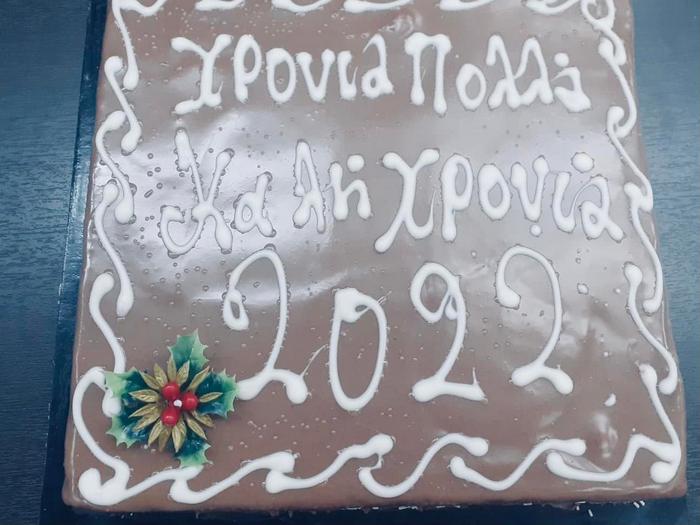 Χρονια Πολλά
Καλη Χρονιά
2022